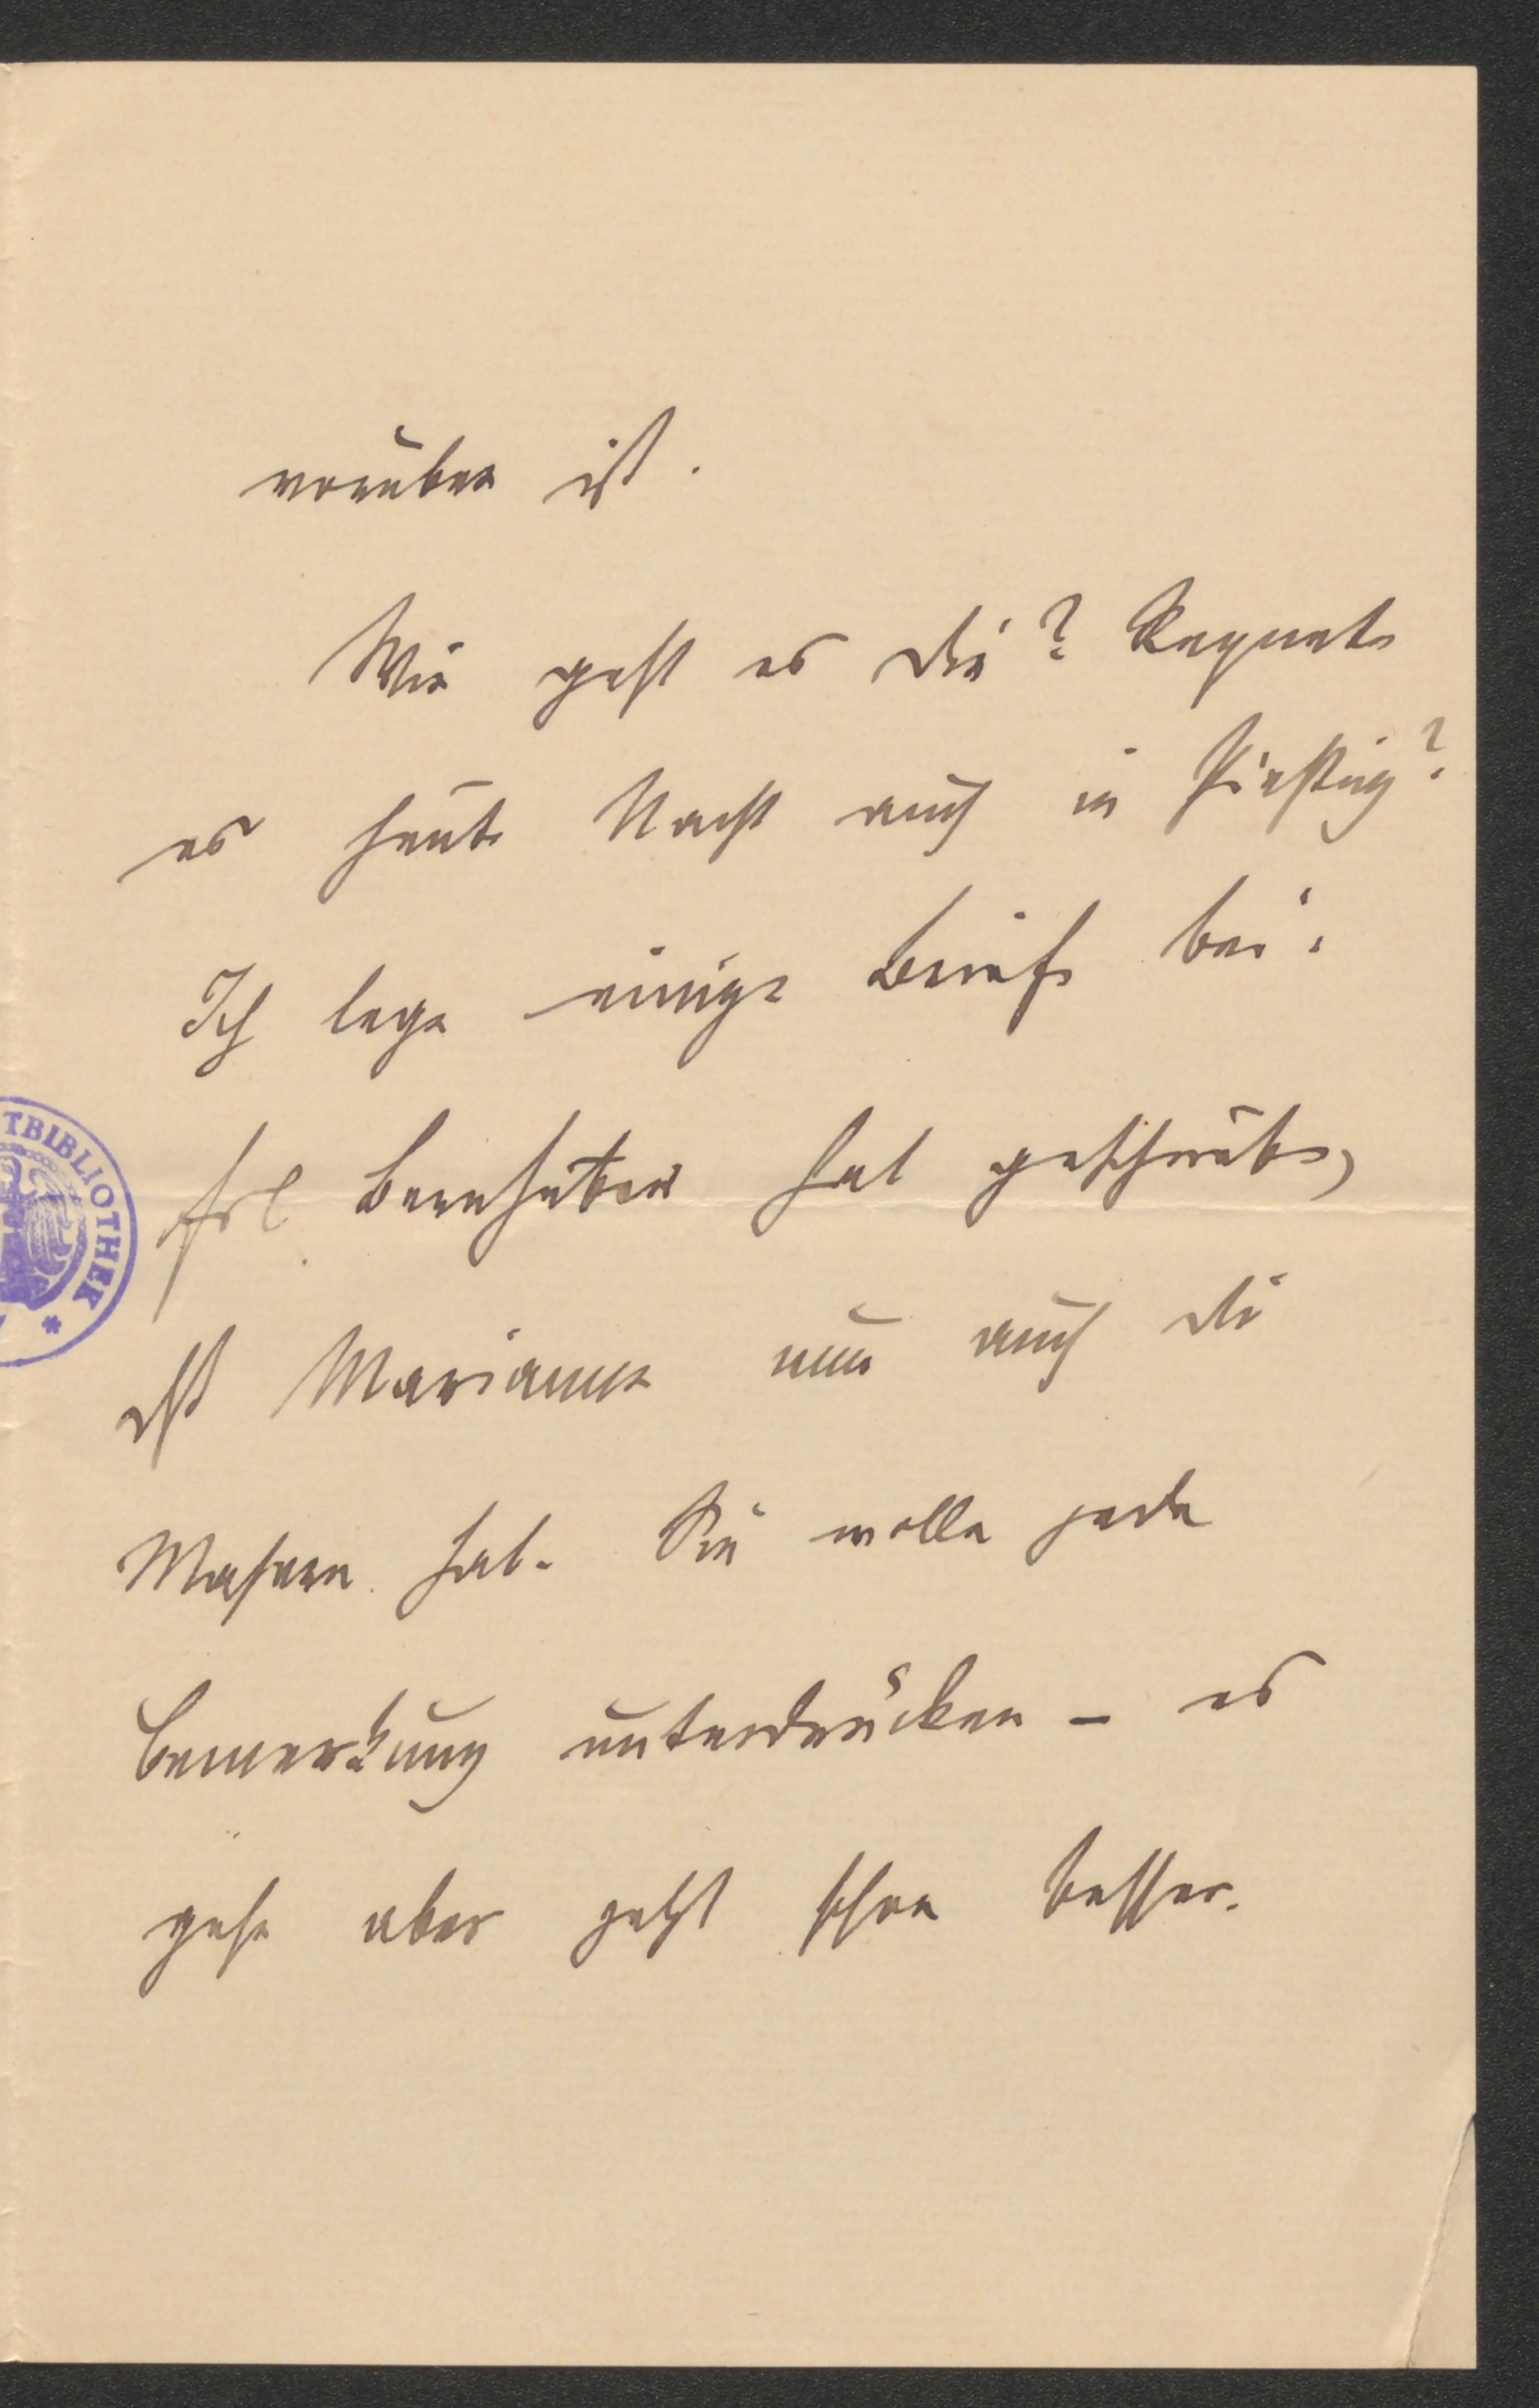 vorüber ist.
Wie geht es dir? Regnete
es heute Nacht auch in Piesting?
Ich lege einige Briefe bei.
Frl Bernhuber hat geschrieben,
daß Marianne nun auch die
Masern hat. Sie wolle jede
Bemerkung unterdrücken – es
gehe aber jetzt schon besser.
TBIBLIOTHEK *